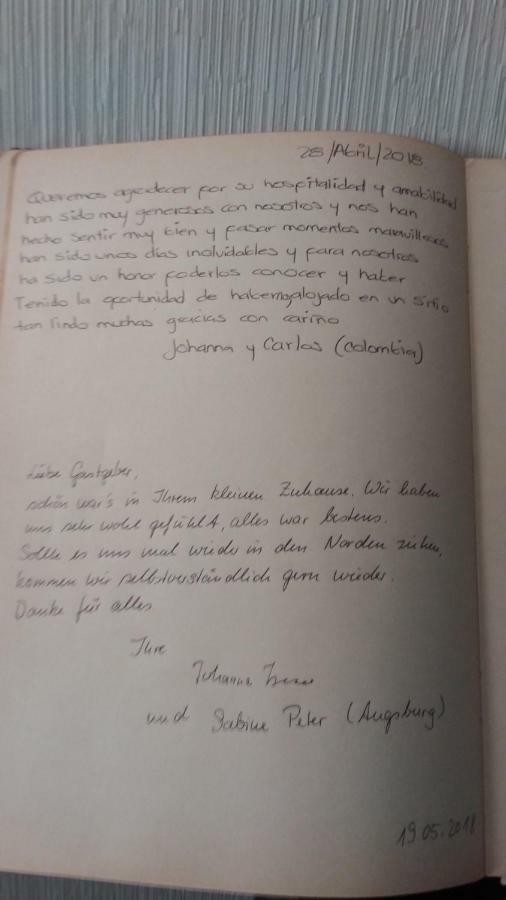 28/Abril/2018
Queremos agradecer por su hospitalidad y amabilidad
han sido muy generosos con nosotros y nos han
hecho sentir muy bien y pasar momentos maravillosos
han sido unos dias inolvidables y para nosotros
ha sido un honor poderlos conocer y haber
Tenido la oportunidad de habernos alojado en un sitio
tan lindo muchas gracias con cariño
Johanna y Carlos (Colombia)
Liebe Gastgeber,
schön war's in Ihrem kleinen Zuhause. Wir haben
uns sehr wohl gefühlt, alles war bestens.
Sollte es uns mal wieder in den Norden ziehen,
kommen wir selbstverständlich gern wieder.
Danke für alles
Ihre
Johanna
und Sabine Peter (Augsburg)
19.05.2018